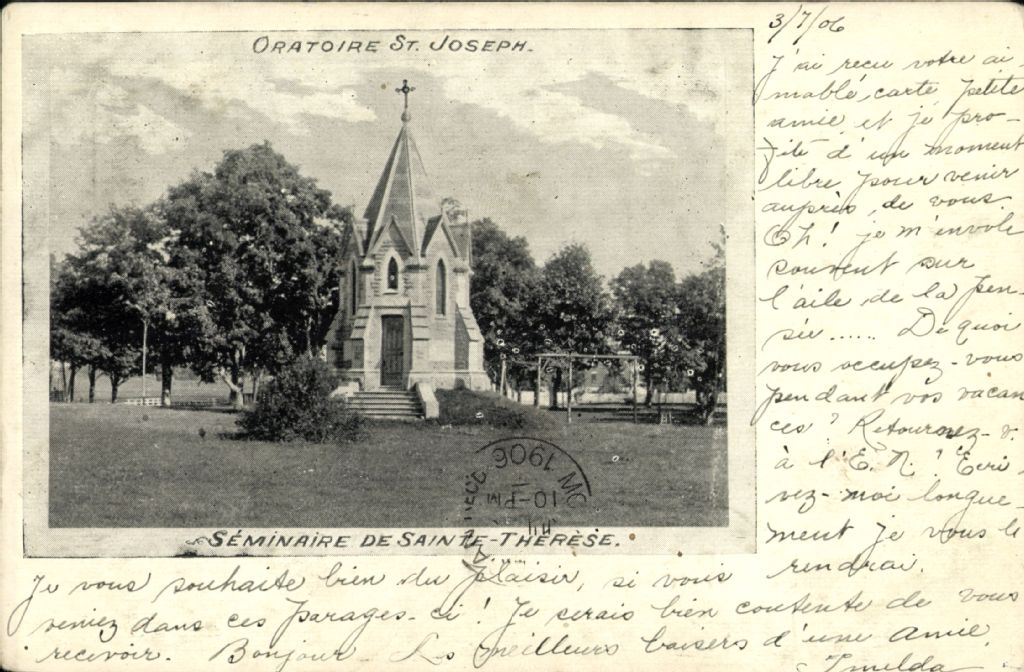 ORATOIRE ST. JOSEPH.
3/7/06
J'ai reçu votre ai
mable, carte petite
amie, et je pro-
fite d'un moment
libre pour venir
auprès, de vous.
Oh! je m'envole
souvent sur
l'aile de la pen-
sée...... De quoi
vous occupez-vous
pendant vos vacan
ces? Retournez-v.
à l'E. N.? Ecri
vez-moi longue-
ment je vous le
rendrai.
1906
10-PM
JUL
MO
SÉMINAIRE DE SAINTE-THÉRÈSE.
Je vous souhaite bien du plaisir, si vous
veniez dans ces parages-ci! Je serais bien contente de vous
recevoir. Bonjour Les meilleurs baisers d'une amie,
- Imelda